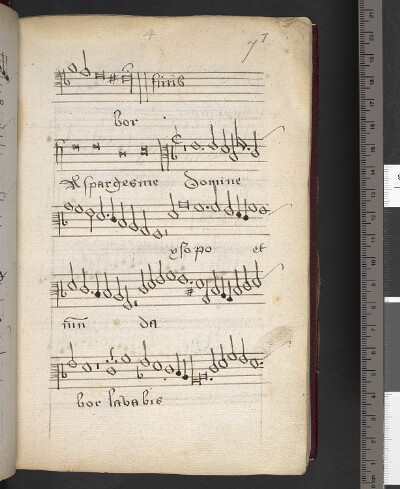 7
finis
bor
Aspargesme Domine
ysopo et
mun da
bor lavabis